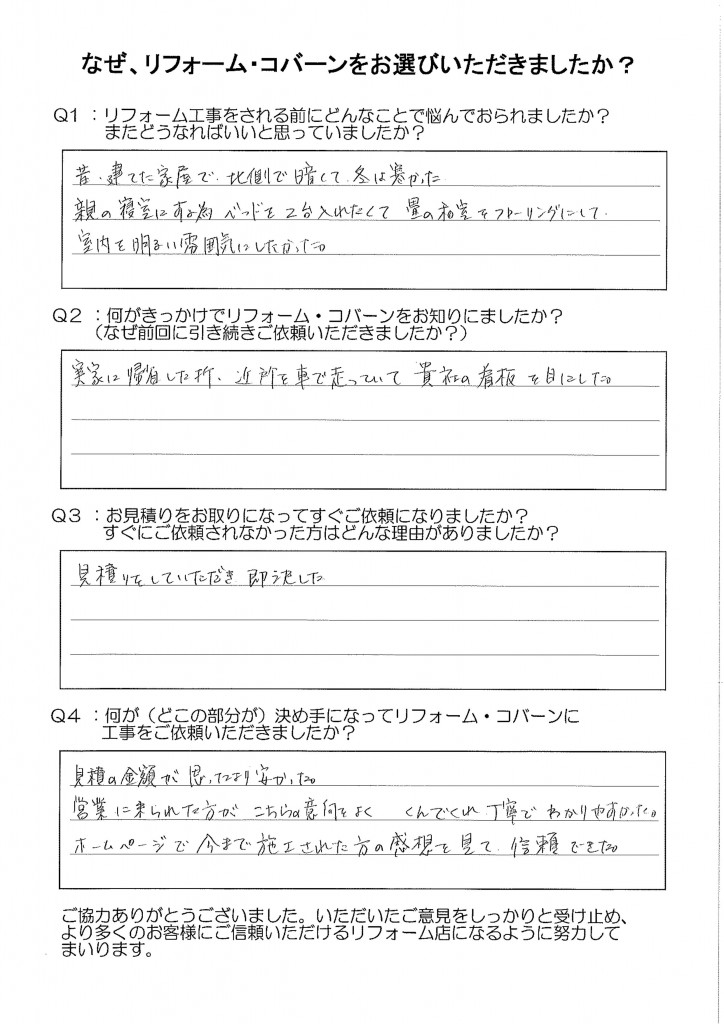 なぜ、リフォーム・コバーンをお選びいただきましたか？
Ｑ１：リフォーム工事をされる前にどんなことで悩んでおられましたか？
またどうなればいいと思っていましたか？
昔、建てた家屋で、北側で暗くて、冬は寒かった
親の寝室にする為 ベッドを２台入れたくて 畳の和室をフローリングにして
室内を明るい雰囲気にしたかった。
Ｑ２：何がきっかけでリフォーム・コバーンをお知りにましたか？
（なぜ前回に引き続きご依頼いただきましたか？）
実家に帰省した折、近所を車で走っていて 貴社の看板を目にした。
Ｑ３：お見積りをお取りになってすぐご依頼になりましたか？
すぐにご依頼されなかった方はどんな理由がありましたか？
見積りをしていただき 即決した
Ｑ４：何が（どこの部分が）決め手になってリフォーム・コバーンに
工事をご依頼いただきましたか？
見積の金額が思ったより安かった。
営業に来られた方が こちらの意向をよく くんでくれ 丁寧で わかりやすかった。
ホームページで今まで施工された方の感想を見て、信頼できた。
ご協力ありがとうございました。いただいたご意見をしっかりと受け止め、
より多くのお客様にご信頼いただけるリフォーム店になるように努力して
まいります。